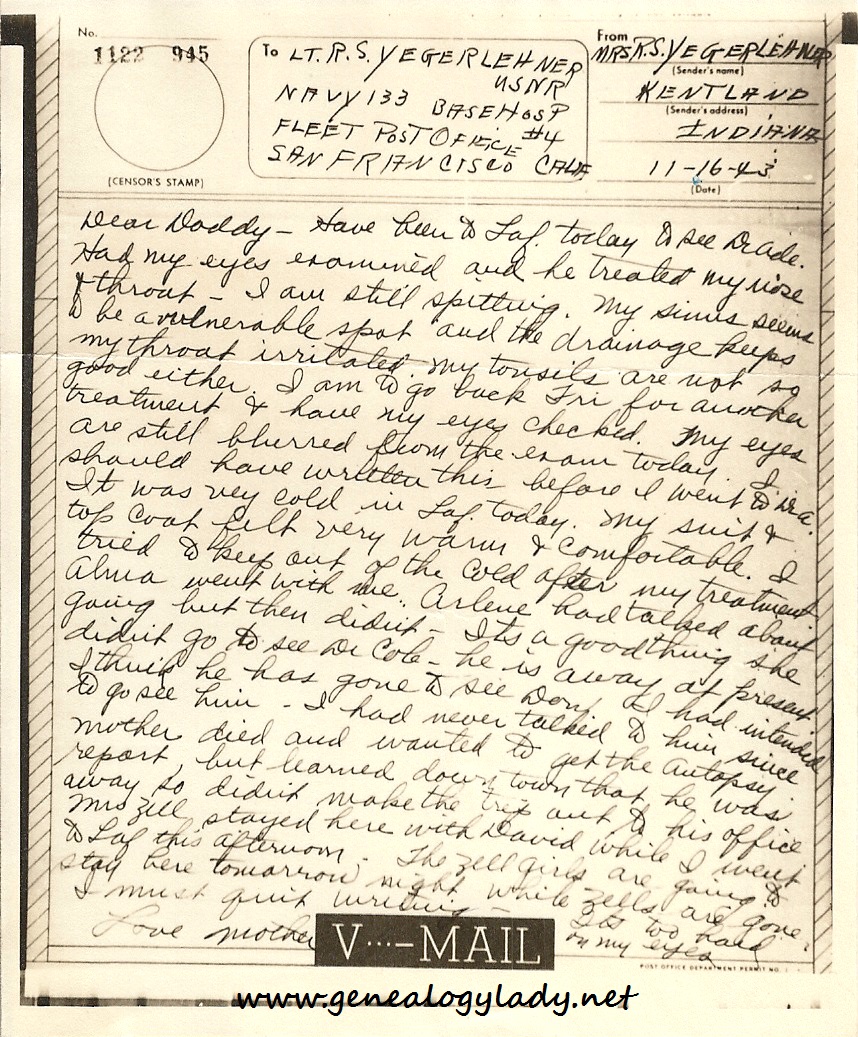 No.
1122 945
(CENSOR'S STAMP)
To LT. R. S. YEGERLEHNER
USNR
NAVY 133 BASE HOSP
FLEET POST OFFICE #4
SAN FRANCISCO CALIF
From
MRS R.S. YEGERLEHNER
(Sender's name)
KENTLAND
(Sender's address)
INDIANA
11-16-43
(Date)
Dear Daddy - Have been to Laf. today to see Dr Ade.
Had my eyes examined and he treated my nose
& throat - I am still spitting. My sinus seems
to be a vulnerable spot and the drainage keeps
my throat irritated. My tonsils are not so
good either. I am to go back Fri for another
treatment & have my eyes checked. My eyes
are still blurred from the exam today. I
should have written this before I went to Dr A.
It was vey cold in Laf. today. My suit &
top coat felt very warm & comfortable. I
tried to keep out of the cold after my treatment
Alma went with me. Arlene had talked about
going but then didn't - It's a good thing she
didn't go to see Dr Cole - he is away at present
I think he has gone to see Don. I had intended
to go see him - I had never talked to him since
mother died and wanted to get the autopsy
report, but learned down town that he was
away so didn't make the trip out to his office
Mrs Zell stayed here with David while I went
to Laf this afternoon - The Zell girls are going to
stay here tomorrow night while Zells are gone.
I must quit writing - It's too hard
on my eyes
Love Mother
V···—MAIL
POST OFFICE DEPARTMENT PERMIT NO.
www.genealogylady.net